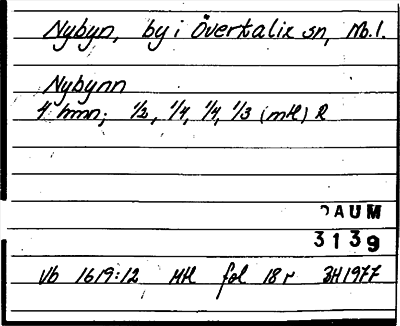 Nybyn, by i Överkalix sn, Nb.l.
Nybynn
4 hmn; 1/2, 1/4, 1/4, 1/3 (mtl) R
DAUM
3139
Vb 1619:12 Mtl fol 18 r BH 1977